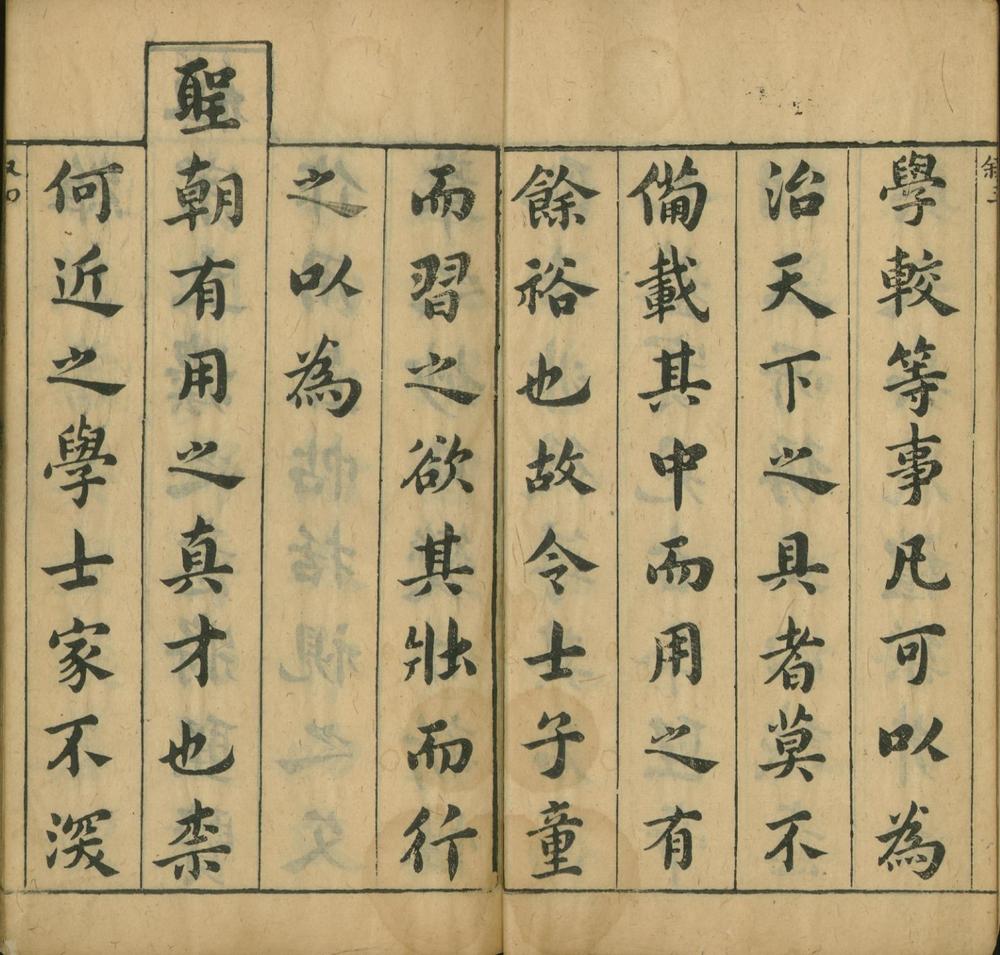 學較等事凡可以為
治天下之具者莫不
備載其中而用之有
餘裕也故令士子童
而習之欲其壯而行
之以為
聖朝有用之真才也柰
何近之學士家不深